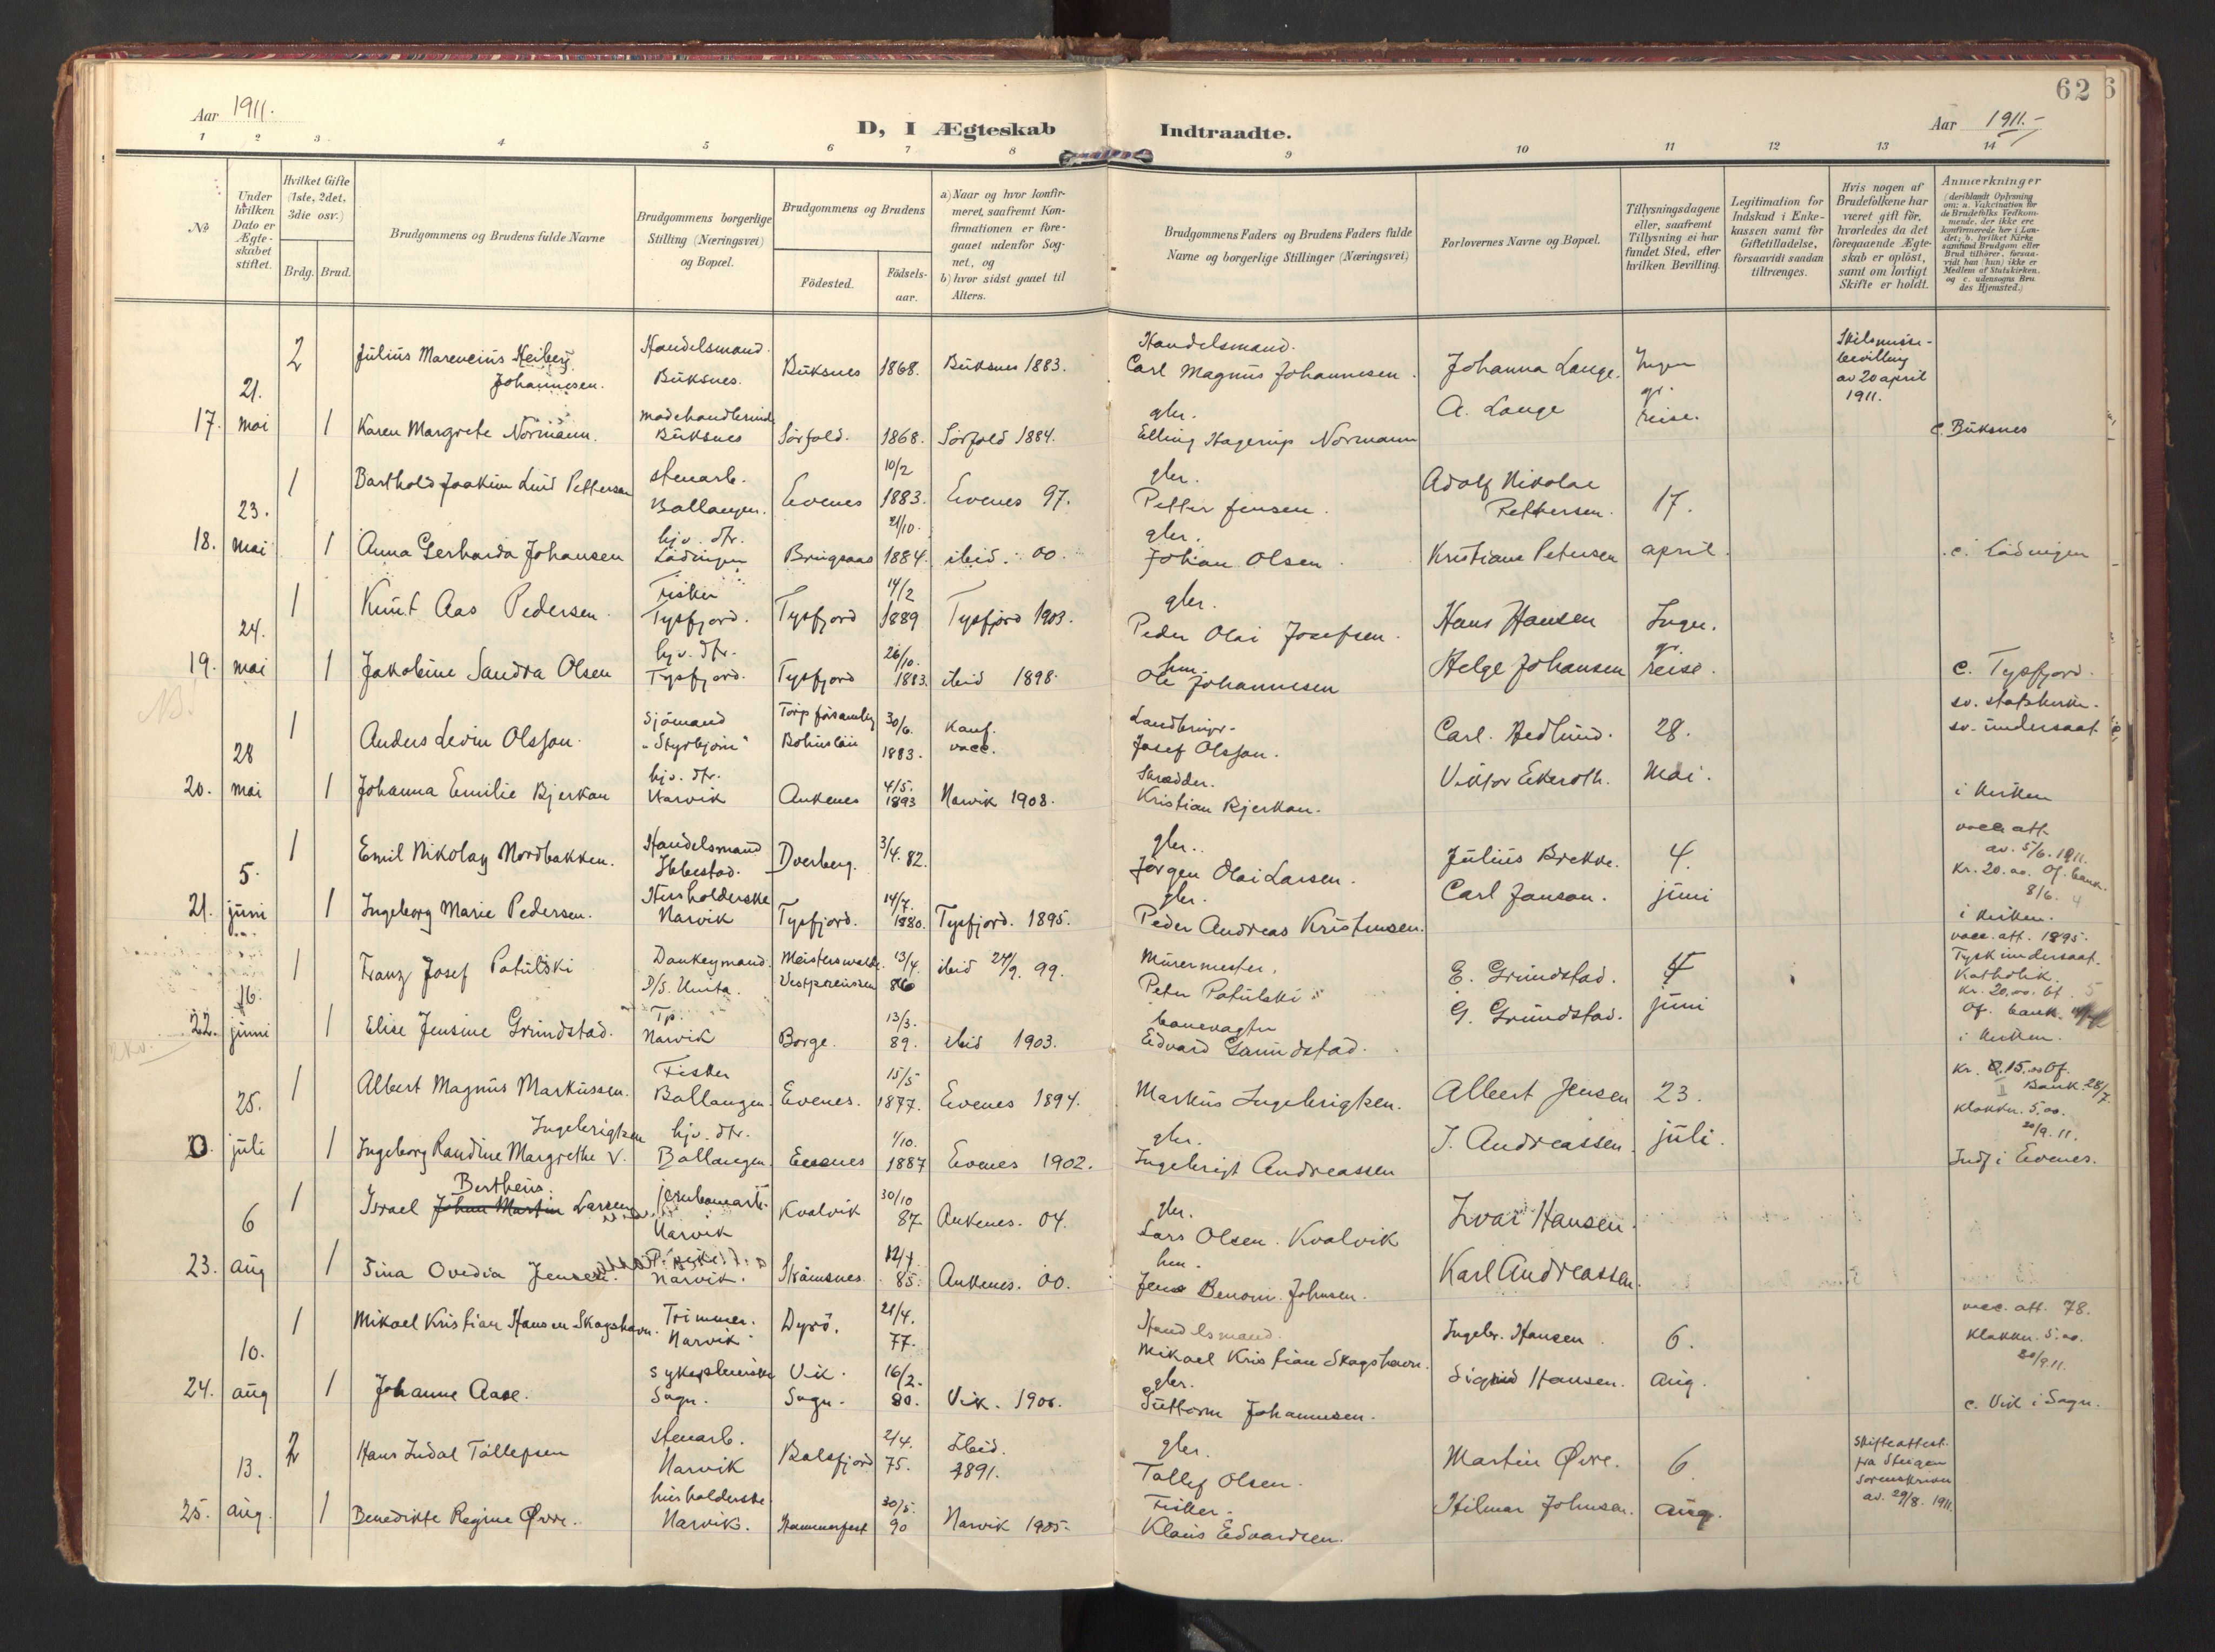 62
Aar 1911.
D, I Ægteskab Indtraadte.
Aar 1911.-
1 2 3 4 5 6 7 8 9 10 11 12 13 14
№
Under hvilken Dato er Ægteskabet stiftet.
Hvilket Gifte (1ste, 2det, 3die osv.)
Brdg. Brud.
Brudgommens og Brudens fulde Navne
Brudgommens borgerlige Stilling (Næringsvei) og Bopæl.
Brudgommens og Brudens
Födested.
Födselsaar.
a) Naar og hvor konfirmeret, saafremt Konfirmationen er foregaaet udenfor Sognet, og
b) hvor sidst gaaet til Alters.
Brudgommens Faders og Brudens Faders fulde Navne og borgerlige Stillinger (Næringsvei)
Forlovernes Navne og Bopæl.
Tillysningsdagene eller, saafremt Tillysning ei har fundet Sted, efter hvilken Bevilling.
Legitimation for Indskud i Enkekassen samt for Giftetilladelse, forsaavidt saadan tiltrænges.
Hvis nogen af Brudefolkene har været gift för, hvorledes da det foregaaende Ægteskab er oplöst, samt om lovligt Skifte er holdt.
Anmærkninger
(deriblandt Oplysning om: a. Vakcination for de Brudefolks Vedkommende, der ikke ere konfirmerede her i Landet; b. hvilket Kirkesamfund Brudgom eller Brud tilhörer, forsaavidt han (hun) ikke er Medlem af Statskirken, og c. udensogns Brudes Hjemsted.)
17. 21. mai
2 Julius Marencius Heiberg Johannesen. Handelsmand. Buksnes. Buksnes 1868. Buksnes 1883. Handelsmand. Carl Magnus Johannesen. Johanna Lange. Ingen Skilsmisse-bevilling av 20 april 1911.
1 Karen Margrete Normann. modehandlerinde Buksnes Sørfold. 1868. Sørfold 1884. gbr. Elling Hagerup Normann A. Lange reise. c. Buksnes
18. 23. mai
1 Barthold Joakim Lind Pettersen stenarb. Ballangen. Evenes 10/2 1883. Evenes 97. gbr. Petter Jensen. Adolf Nikolai Pettersen. 17.
1 Anna Gerharda Johansen hjv. dtr. Lödingen Bringsaas 21/10. 1884. ibid. 00. gbr. Johan Olsen. Kristiane Petersen april. c. Lödingen
19. 24. mai
1 Knut Aas Pedersen. Fisker Tysfjord. Tysfjord 14/2 1889 Tysfjord 1903. gbr. Peder Olai Josefsen. Hans Hansen Ingen.
1 Jakobine Sandra Olsen hjv. dtr. Tysfjord. Tysfjord 26/10. 1883. ibid 1898. Ole Johannesen Helge Johansen reise. c. Tysfjord.
NB.
20. 28 mai
1 Anders Levin Olsson. Sjömand "Styrbjörn" Torp församling Bohuslän 30/6. 1883. Konf. vacc. Josef Olsson. Carl. Hedlund. 28. sv. statskirke. sv. undersaat
1 Johanna Emilie Bjerkan hjv. dtr. Narvik Ankenes 4/5. 1893 Narvik 1908. Skrædder. Kristian Bjerkan. Viktor Ekeroth. Mai. i kirken
21. 5. juni
1 Emil Nikolay Nordbakken. Handelsmand Ibbestad. Dverberg. 3/4. 82. gbr. Jörgen Olai Larsen. Julius Brekke. 4. vacc. att. av. 5/6. 1911. Kr. 20.00. Of. bank. 8/6.
1 Ingeborg Marie Pedersen. Husholderske Narvik Tysfjord. 14/7. 1880. Tysfjord. 1895. gbr. Peder Andreas Kristensen. Carl Janson. juni i kirken.
22. 16. juni
1 Franz Josef Patulski Donkeymand. D/S. Unita. Meisterswalde. Vestpreussen 13/4. 86 ibid 24/9. 99. Murermester. Peter Patulski E. Grundstad. 4 vacc. att. 1895. Tysk undersaat. Katholik. Kr. 20.00. Of. bank.
1 Elise Jensine Grundstad. Tp. Narvik Borge. 13/3. 89. ibid 1903. banevagter Edvard Grundstad. G. Grundstad. juni i kirken.
0. 25. juli
1 Albert Magnus Markussen. Fisker Ballangen. Evenes. 15/5 1877. Evenes 1894. Markus Ingebrigtsen. Albert Jensen 23. Kr. 15.00 Of. Bank. 28/7. klokker. 5.00. 20/9. 11.
1 Ingeborg Randine Margrethe V. Ingebrigtsen hjv. dtr. Ballangen. Evenes 1/10. 1887 Evenes 1902. gbr. Ingebrigt Andreassen J. Andreassen. juli. Indf i Evenes.
23. 6 aug
1 Israel Bertheus. Johan Martin Larsen jernbanearb. Narvik Kvalvik 30/10 87. Ankenes. 04. gbr. Lars Olsen. Kvalvik Ivar Hansen.
1 Tina Ovedia Jensen. Narvik. Strömsnes. 85. Ankenes. 00. Jens Benoni. Johnsen. Karl Andreassen.
24. 10. aug
1 Mikael Kristian Hansen Skogshavn. Trimmer. Narvik. Dyrö. 21/4. 77. Handelsmand. Mikael Kristian Skogshavn. Ingebr. Hansen 6. vacc. att. 78. Klokker. 5.00. 20/9.11.
1 Johanne Aase. sykepleierske Sogn. Vik. Sogn. 16/2. 80. Vik. gbr. Guttorm Johannesen. Sigrid Hansen. aug. c. Vik i Sogn.
25. 13. aug.
2 Hans Indal Tollefsen stenarb. Narvik Balsfjord 2/4. 75. Ibid. 1891. gbr. Tollef Olsen. Martin Øvre. 6. Skifteattest. fra Steigen Sorenskriver av. 29/8. 1911.
1 Benedikte Regine Øvre. husholderske Narvik. Hammerfest 30/5. 90 Narvik 1905. Fisker. Klaus Edvardsen. Hilmar Johnsen. aug.